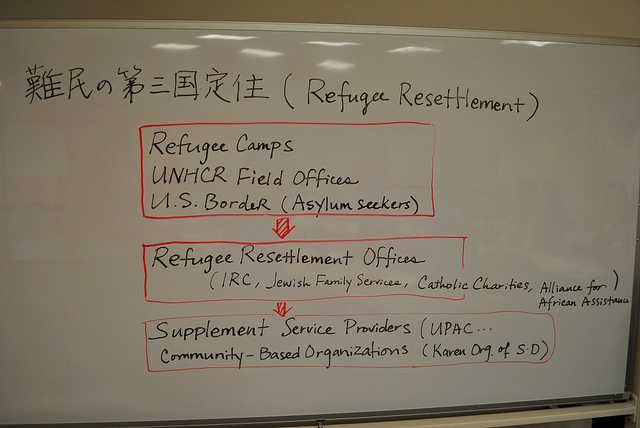 難民の第三国定住 (Refugee Resettlement)
Refugee Camps
UNHCR Field Offices
U.S. Border (Asylum seekers)
Refugee Resettlement Offices
(IRC, Jewish Family Services, Catholic Charities, Alliance for African Assistance)
Supplement Service Providers (UPAC...
Community-Based Organizations (Karen Org. of S.D)